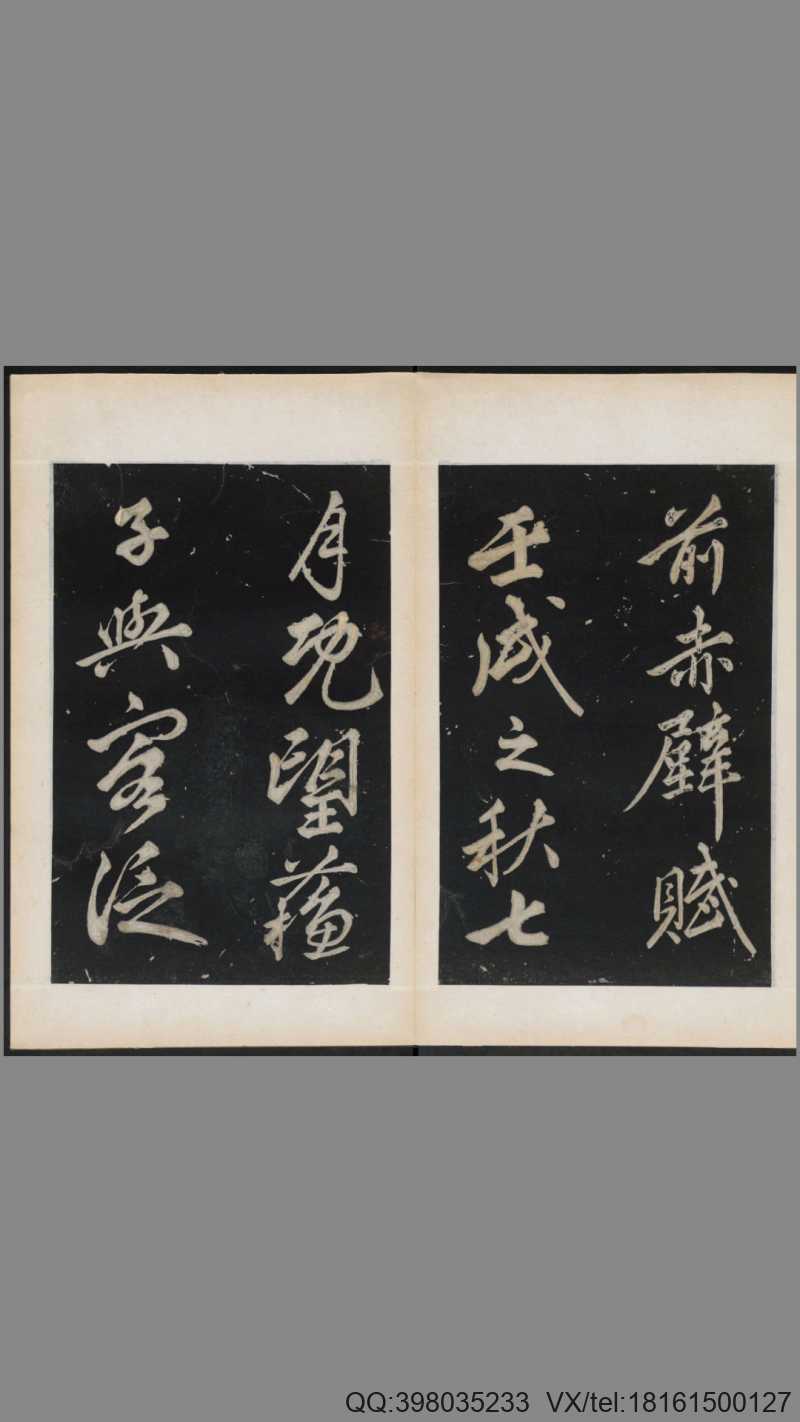 前赤壁賦
壬戌之秋七
月既望蘓
子與客泛
QQ:398035233 VX/tel:18161500127